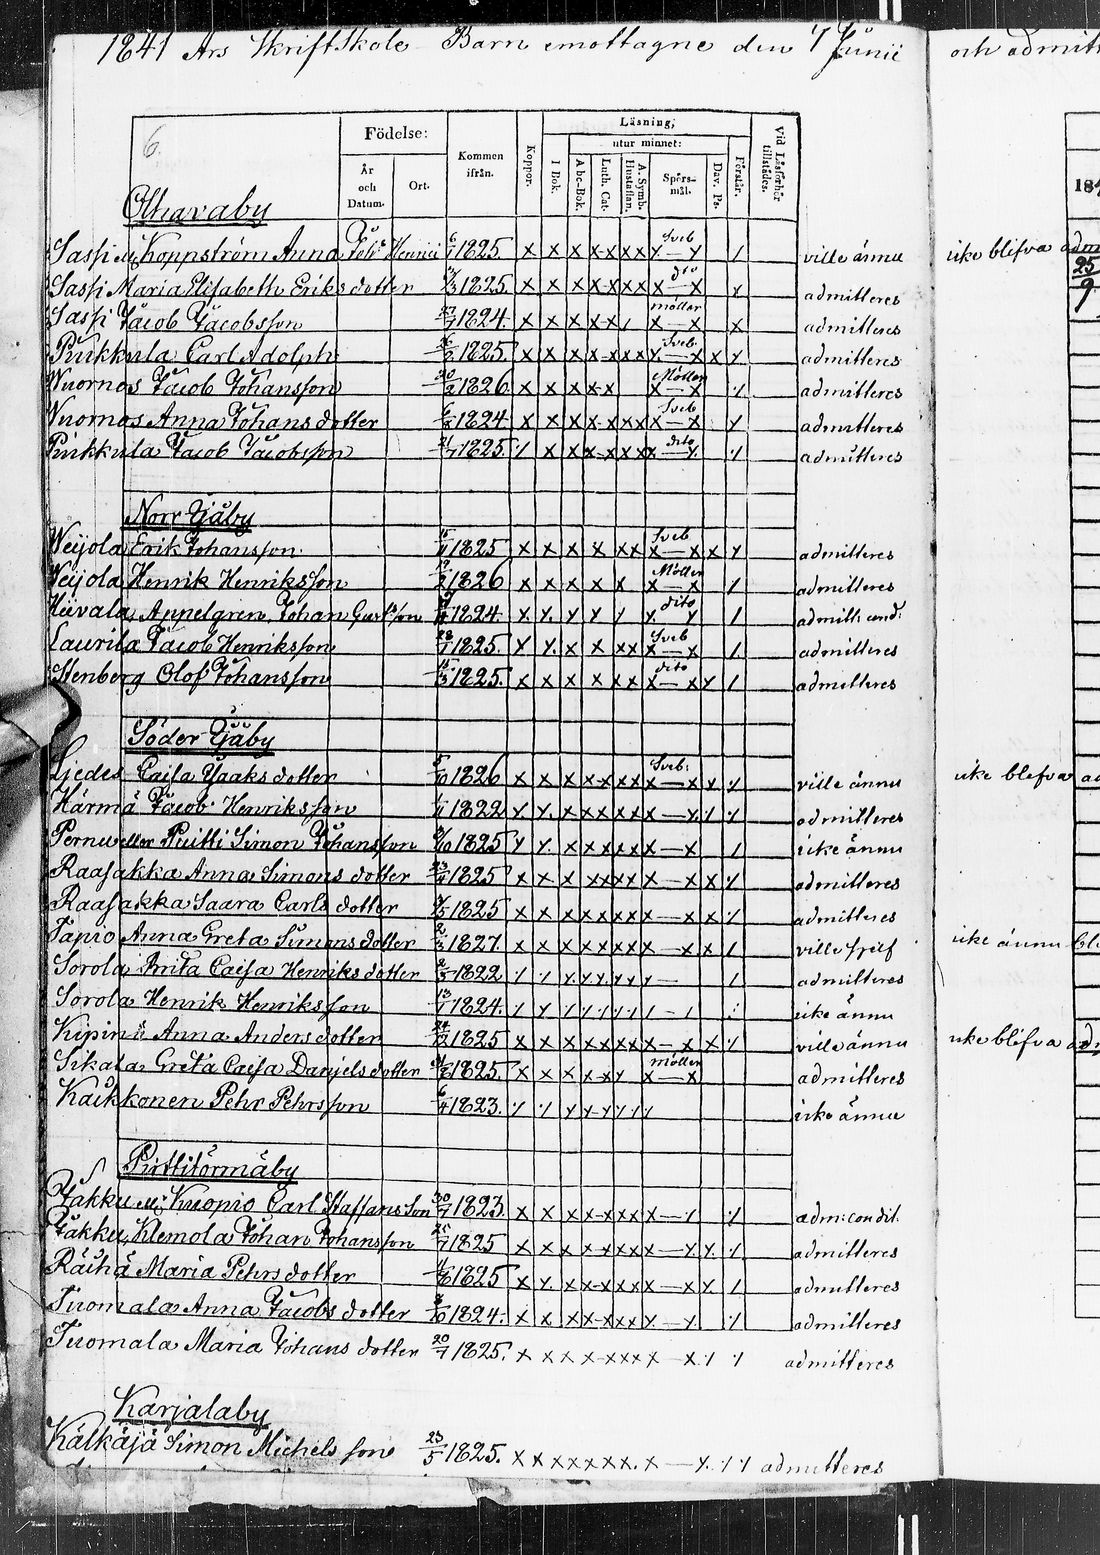 1841 Ars Skriftskole Barn emottagne den 7 Junii
och admitt
6.
Födelse:
År och Datum.
Ort.
Kommen ifrån.
Koppor.
Läsning,
I Bok.
utur minnet:
Abc-Bok.
Luth. Cat.
A. Symb. Hustaflan.
Spörsmål.
Dav. Ps.
Förstår.
Vid Läsförhör tillstädes.
184
Olhavaby
Saspi Koppström Anna Henrici 1825. x x x x-x x x Sveb x—x / ville ännu icke blifva adm
Saspi Maria Elisabeth Eriks dotter 1825. x x x x x x x dto x—x x admitteres
Saspi Jacob Jacobsson 1824. x x x x-x / möller x—x x admitteres
Purkkula Carl Adolph 1825. x x x x-x x x Sveb x—x x x admitteres
Wuornos Jacob Johansson 1826. x x x x-x Möller x—x admitteres
Wuornos Anna Johans dotter 1824 x x x x-x x x Sveb x—x admitteres
Purkkula Jacob Jacobsson 21/7 1825. x x x-x x x x dito —x admitteres
Norr Ijäby
Weijola Erik Johansson 1825 x x x x x x Sveb x—x x x admitteres
Weijola Henrik Henriksson 19/2 1826 x x x x x Möller x—x / admitteres
Hiivala, Appelgren Johan Gust:sson 1824. x x. y y / dito y y / admitt: cond:
Laurila Jacob Henriksson 28/7 1825. x x. x x x x Sveb x—x / admitteres
Stenberg Olof Johansson 15/3 1825. x x x x x x dito x—x y / admitteres
Söder Ijäby
Ljedes Caisa Isaaks dotter 1826 x x x x-x x x Sveb: x—x x ville ännu icke blefva ad
Härmä Jacob Henriksson 1822 x x. x x x x x x—y / admitteres
Pernu eller Puitti Simon Johansson 1825 x x. x x x x x x—x / icke ännu
Raasakka Anna Simons dotter 23/4 1825 x x x x x x x x—x x x admitteres
Raasakka Saara Carls dotter 1825 x x x x x x x x—x x admitteres
Tapio Anna Greta Simons dotter 1827. x x x x x x x x—x x / ville sjelf icke ännu ble
Sorola Brita Caisa Henriks dotter 1822 / / x. x. x. x x — / admitteres
Sorola Henrik Henriksson 13/7 1824. / y / y / / / / — / : icke ännu
Kipinä Anna Anders dotter 24/12 1825 x x x x x x x x—x x x ville ännu icke blifva adm
Sikala Greta Caisa Danjels dotter 1825. x x x x-x y möller x—x admitteres
Kaikkonen Pehr Pehrsson 6/4 1823. / / x x-y / y y icke ännu
Pirttitörmäby
Jakku Kuopio Carl Staffansson 30/7 1823. x x x x-x x x x—y / adm: condit.
Jakku, Klemola Johan Johansson 1825 x x x x-x x x x—y x / admitteres
Räihä Maria Pehrs dotter 1825 x x. x x-x x x x—x y / admitteres
Tuomala Anna Jacobs dotter 1824. x x x x-x x x x—y / admitteres
Tuomala Maria Johans dotter 20/7 1825. x x x x-x x x x—x / / admitteres
Karjalaby
Kälkäjä Simon Michels son 23/5 1825. x x x x x x x. x—x. / / admitteres
25
9